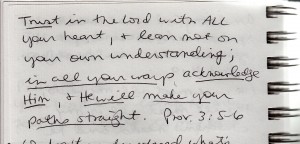 Trust in the Lord with ALL
your heart, & lean not on
your own understanding;
in all your ways, acknowledge
Him, & He will make your
paths straight. Prov. 3:5-6